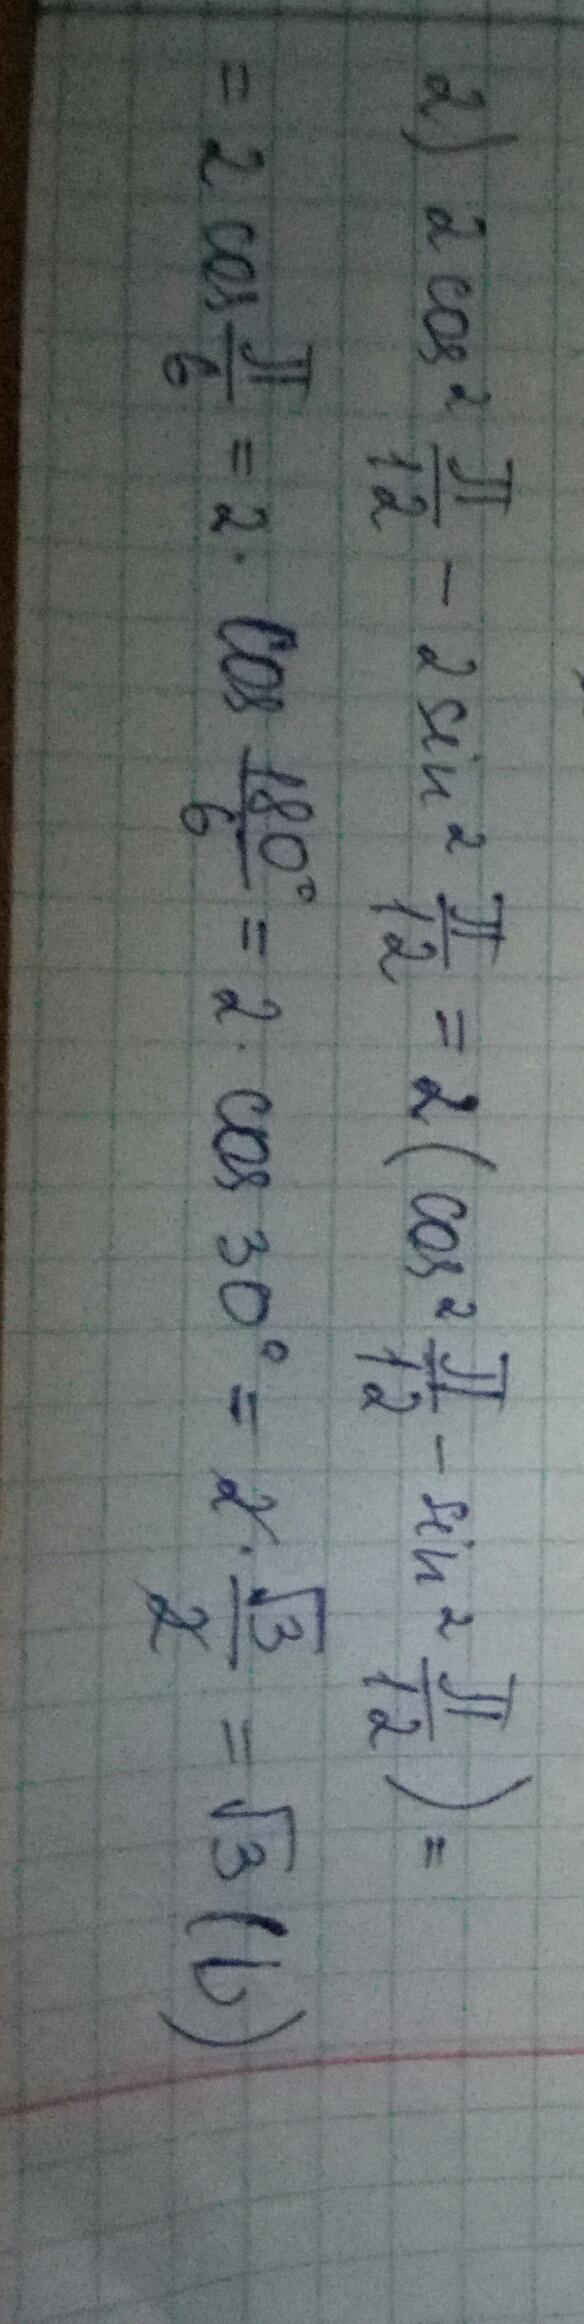 2) 2 cos² π/12 - 2 sin² π/12 = 2 (cos² π/12 - sin² π/12) =
= 2 cos π/6 = 2 · cos 180°/6 = 2 · cos 30° = 2 · √3/2 = √3 (b)